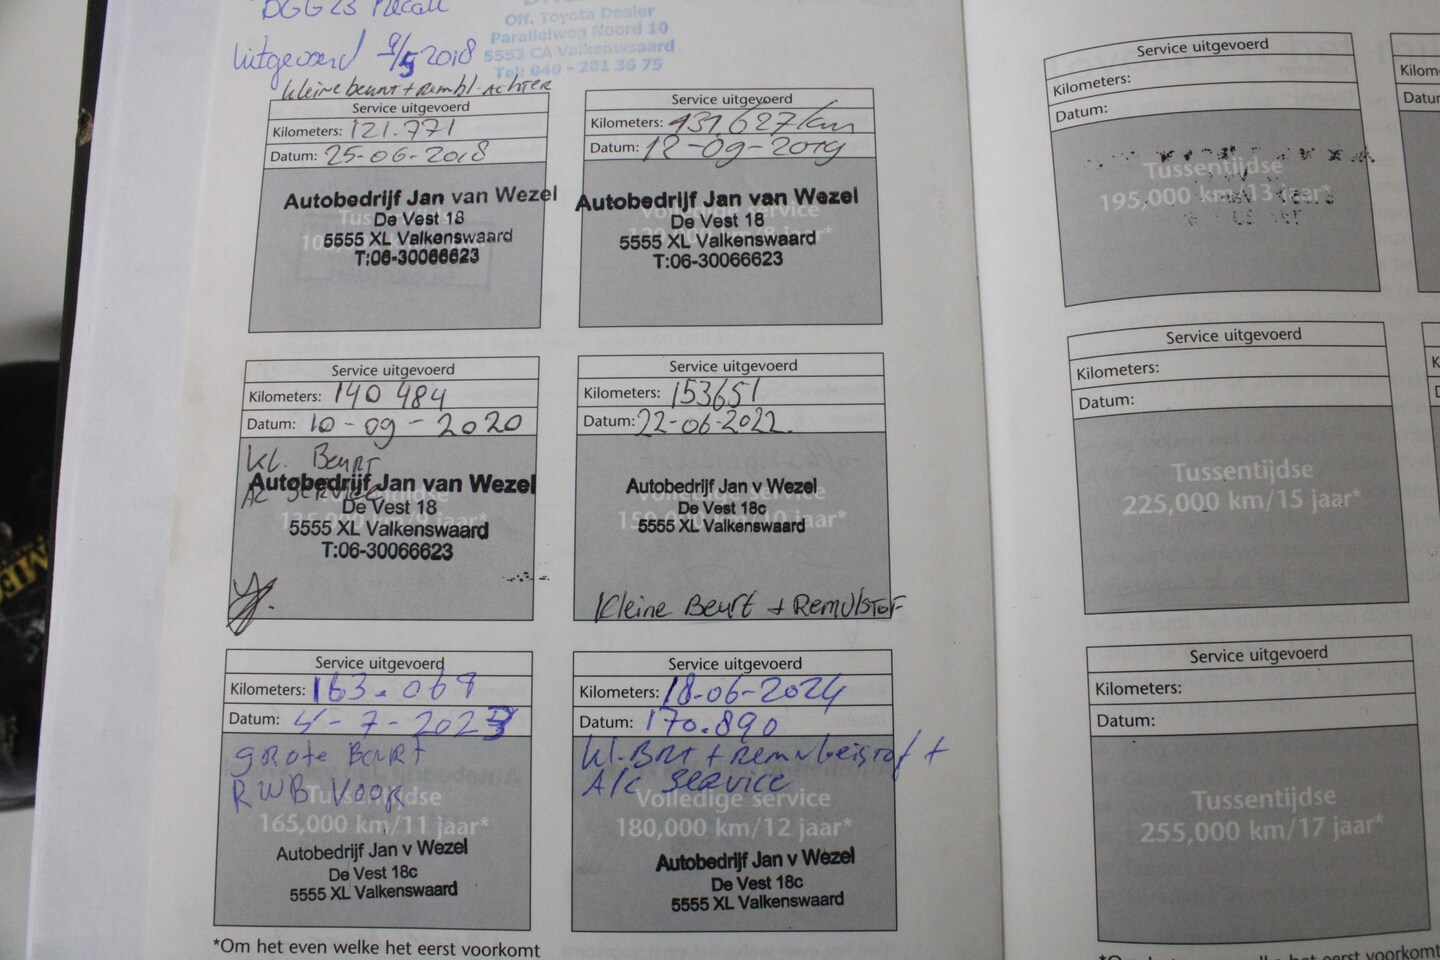 Recall
Off. Toyota Dealer
Uitgevoerd 9/5 2018
Parallelweg Noord 10
5553 CA Valkenswaard
Tel: 040 - 201 36 75
kleine beurt + rembl. Achter
Service uitgevoerd
Kilometers: 121.771
Datum: 25-06-2018
Autobedrijf Jan van Wezel
De Vest 18
5555 XL Valkenswaard
T:06-30066623
Service uitgevoerd
Kilometers: 131.627 km
Datum: 12-09-2019
Autobedrijf Jan van Wezel
De Vest 18
5555 XL Valkenswaard
T:06-30066623
Service uitgevoerd
Kilometers: 140 484
Datum: 10-09-2020
Kl. Beurt
Autobedrijf Jan van Wezel
De Vest 18
5555 XL Valkenswaard
T:06-30066623
Service uitgevoerd
Kilometers: 153651
Datum: 22-06-2022.
Autobedrijf Jan v Wezel
De Vest 18c
5555 XL Valkenswaard
Kleine Beurt + Remvlstof
Service uitgevoerd
Kilometers: 163.069
Datum: 4-7-2023
grote Beurt
RWB Voor
Tussentijdse
165,000 km/11 jaar*
Autobedrijf Jan v Wezel
De Vest 18c
5555 XL Valkenswaard
Service uitgevoerd
Kilometers: 18-06-2024
Datum: 170.890
Kl. BRT + remvloeistof +
A/c service
Volledige service
180,000 km/12 jaar*
Autobedrijf Jan v Wezel
De Vest 18c
5555 XL Valkenswaard
*Om het even welke het eerst voorkomt
Service uitgevoerd
Kilometers:
Datum:
Tussentijdse
195,000 km/13 jaar*
Service uitgevoerd
Kilometers:
Datum:
Tussentijdse
225,000 km/15 jaar*
Service uitgevoerd
Kilometers:
Datum:
Tussentijdse
255,000 km/17 jaar*